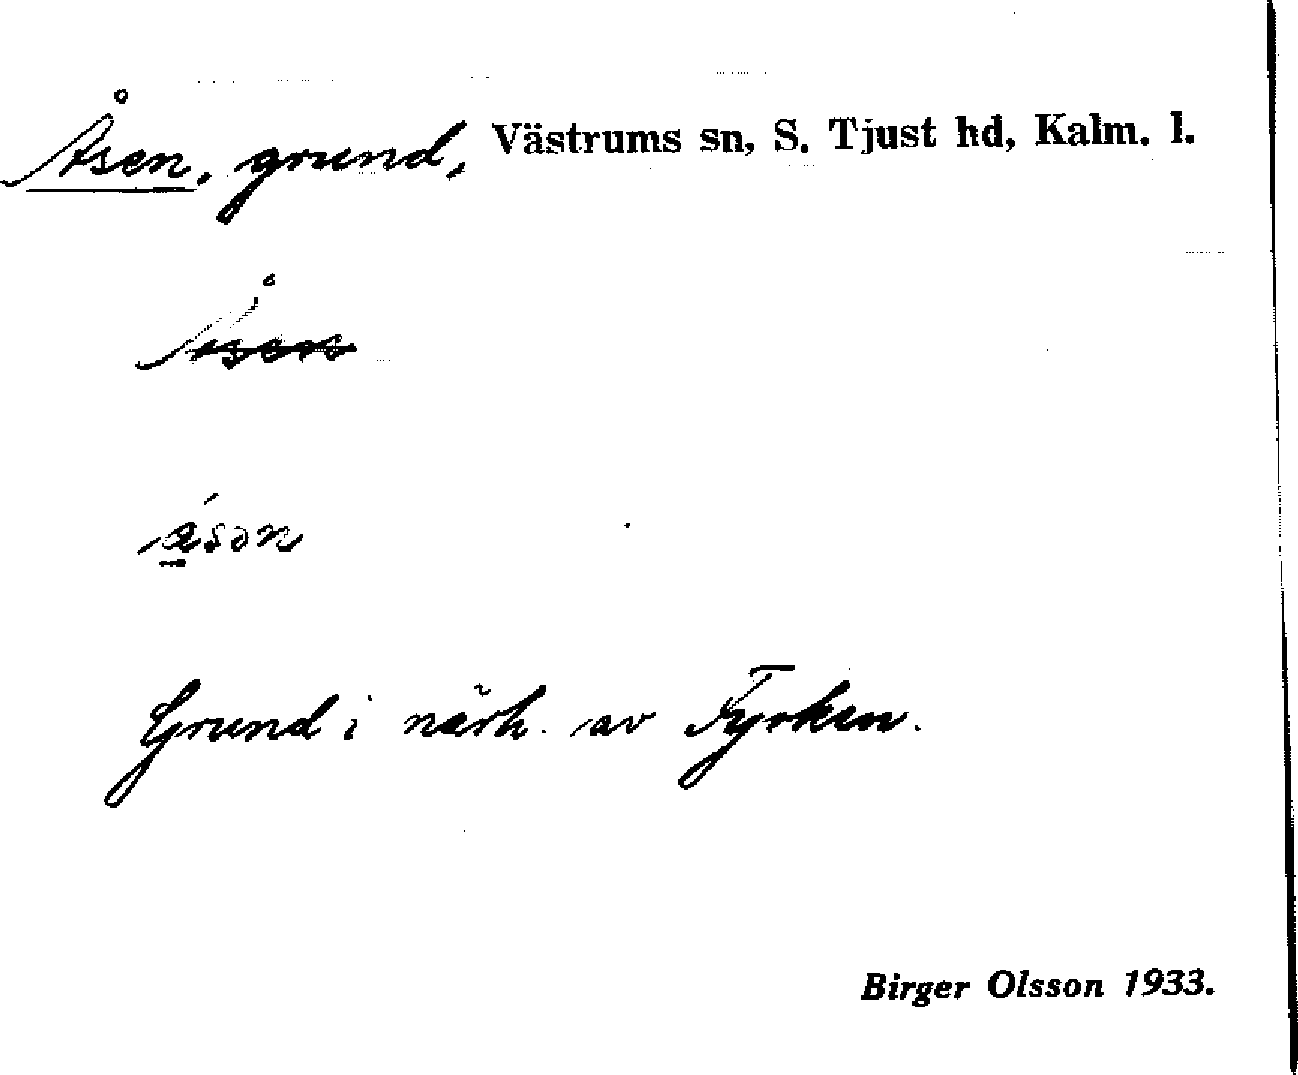 Åsen, grund, Västrums sn, S. Tjust hd, Kalm. l.
Åsen
Grund i närh. av Fyrken.
Birger Olsson 1933.